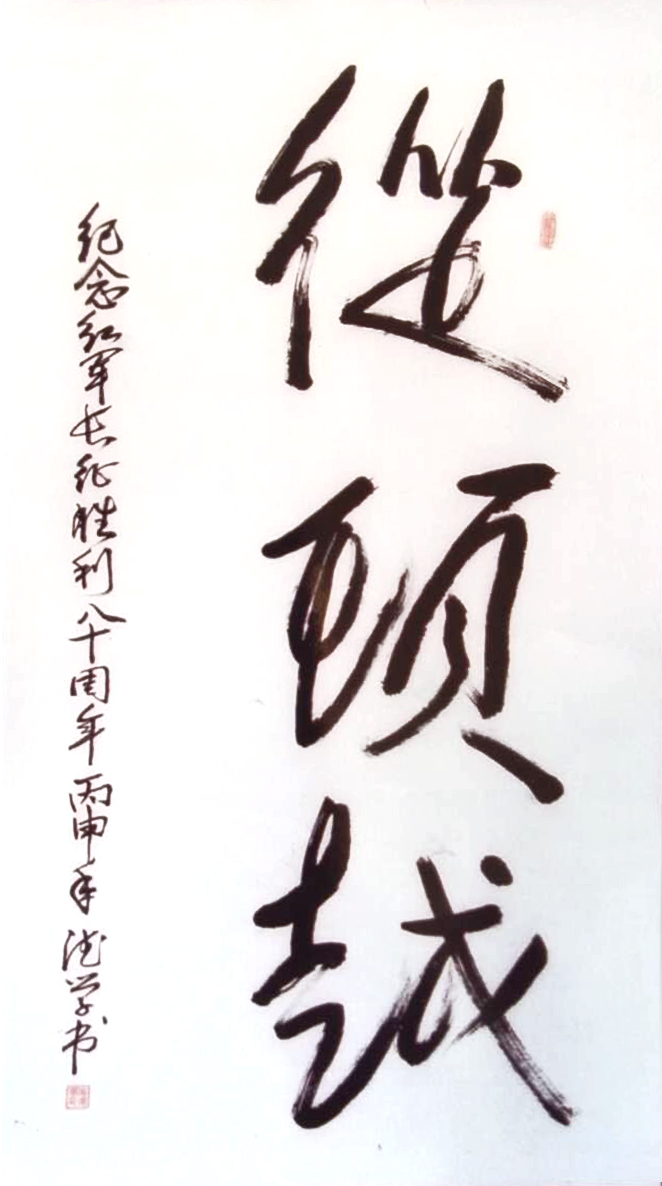 從頭越
纪念红军长征胜利八十周年丙申年德学书